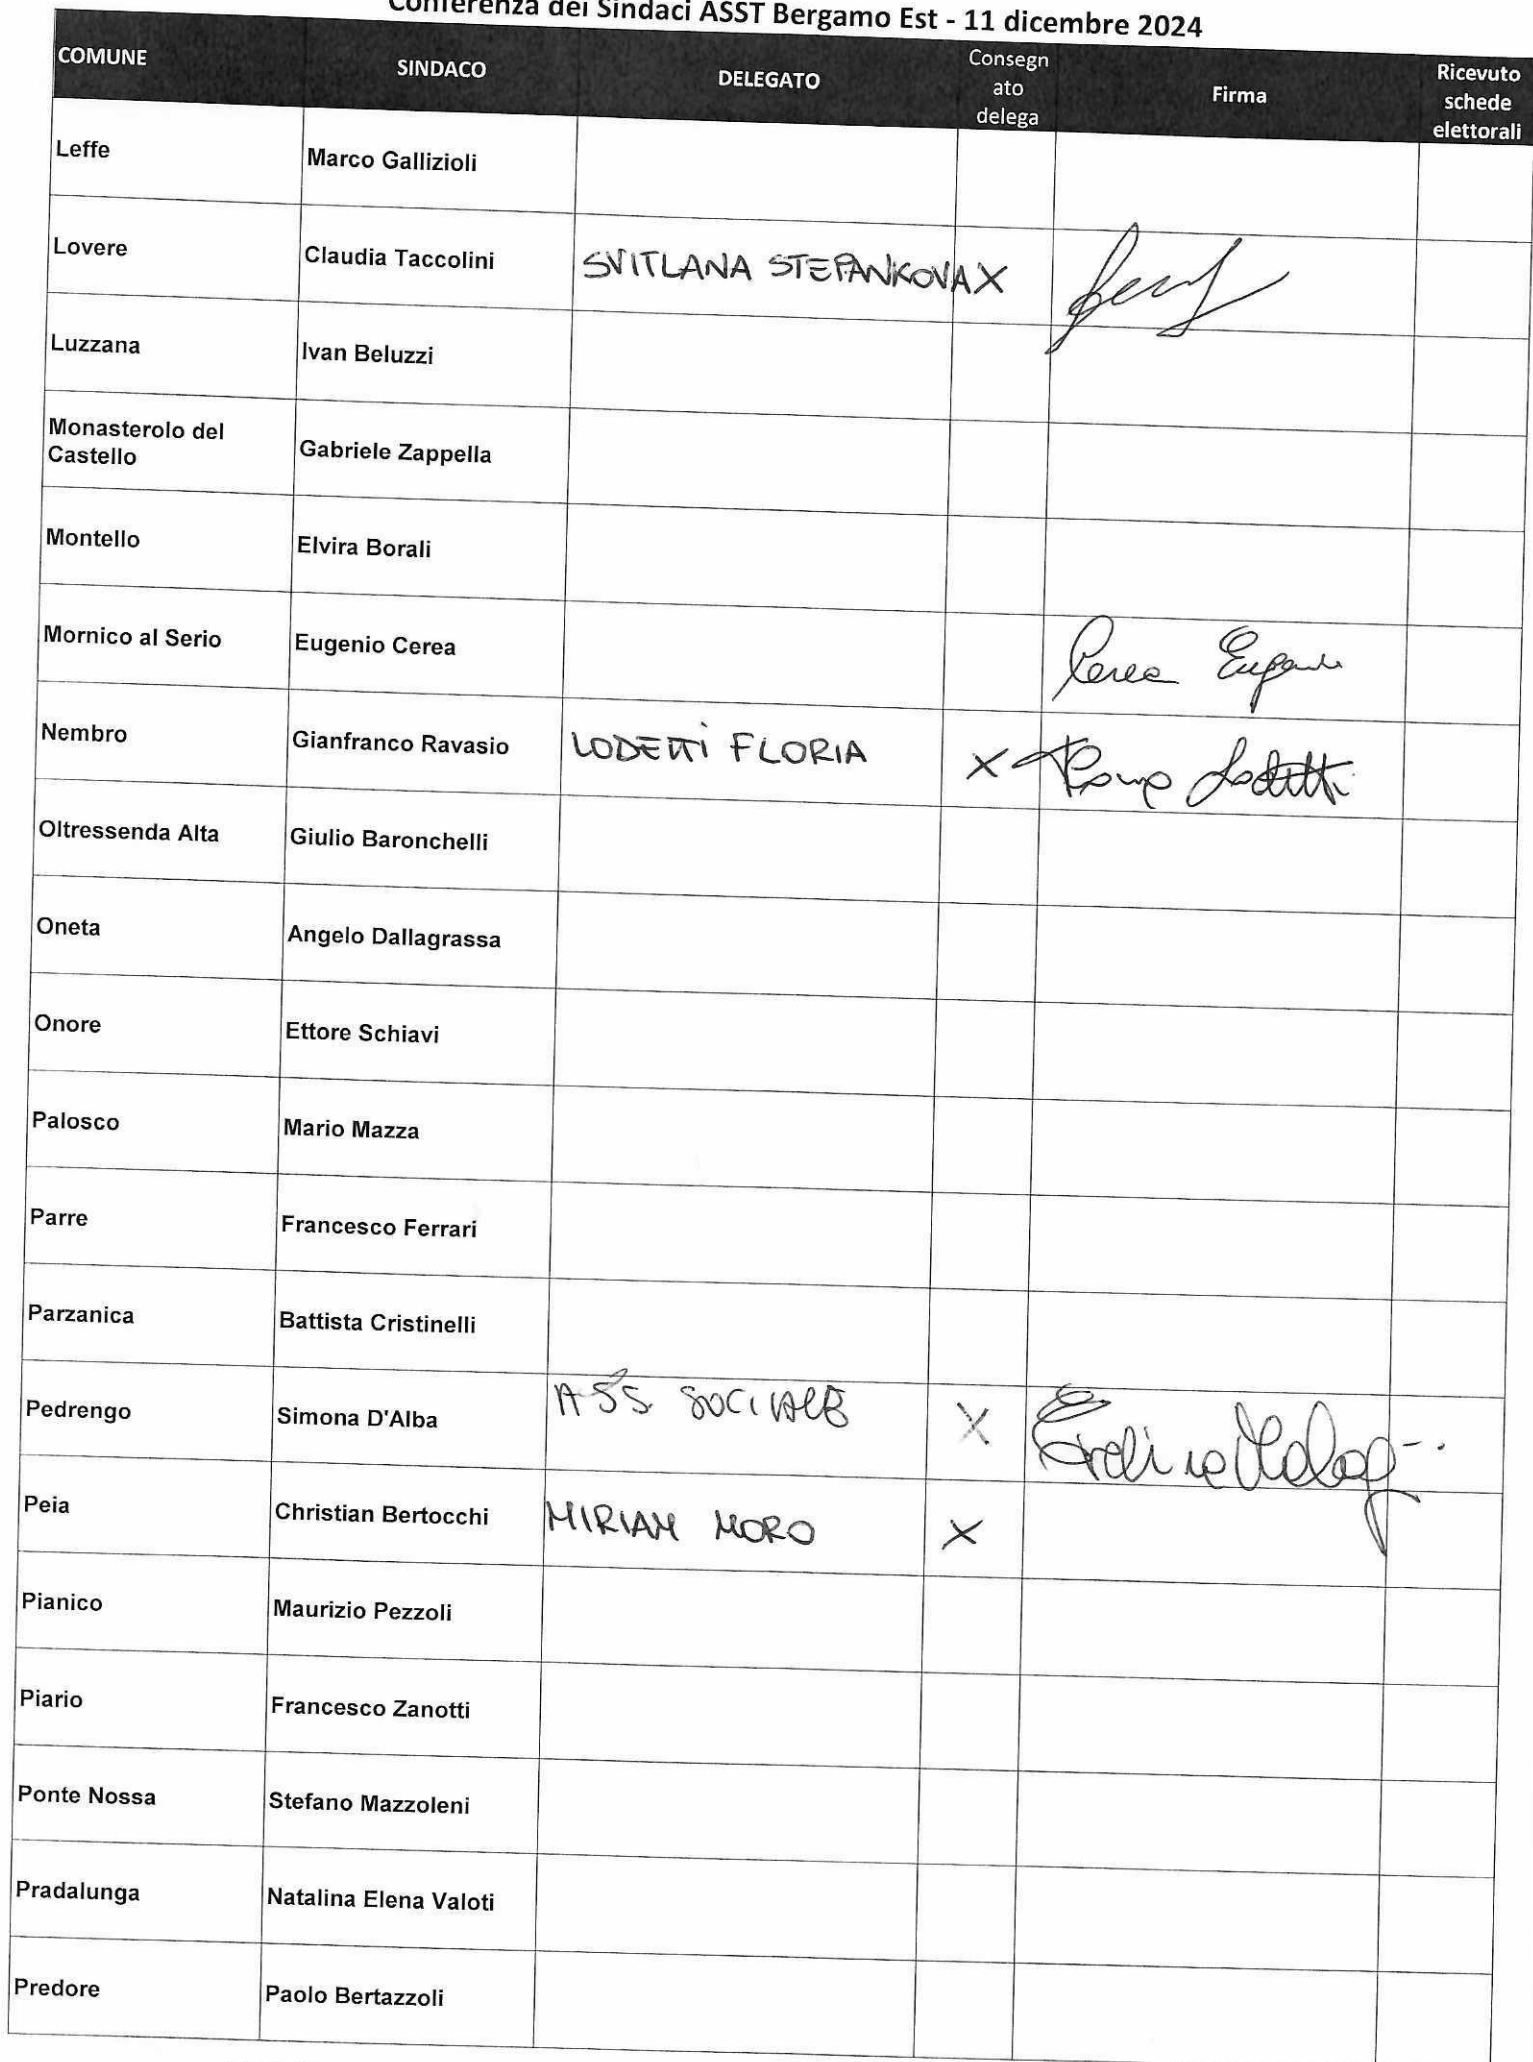 Conferenza dei Sindaci ASST Bergamo Est - 11 dicembre 2024
COMUNE SINDACO DELEGATO Consegn ato delega Firma Ricevuto schede elettorali
Leffe Marco Gallizioli
Lovere Claudia Taccolini SVITLANA STEPANKOVA X
Luzzana Ivan Beluzzi
Monasterolo del Castello Gabriele Zappella
Montello Elvira Borali
Mornico al Serio Eugenio Cerea Cerea Eugenio
Nembro Gianfranco Ravasio LODETTI FLORIA X Lodetti
Oltressenda Alta Giulio Baronchelli
Oneta Angelo Dallagrassa
Onore Ettore Schiavi
Palosco Mario Mazza
Parre Francesco Ferrari
Parzanica Battista Cristinelli
Pedrengo Simona D'Alba ASS. SOCIALE X
Peia Christian Bertocchi MIRIAM MORO X
Pianico Maurizio Pezzoli
Piario Francesco Zanotti
Ponte Nossa Stefano Mazzoleni
Pradalunga Natalina Elena Valoti
Predore Paolo Bertazzoli